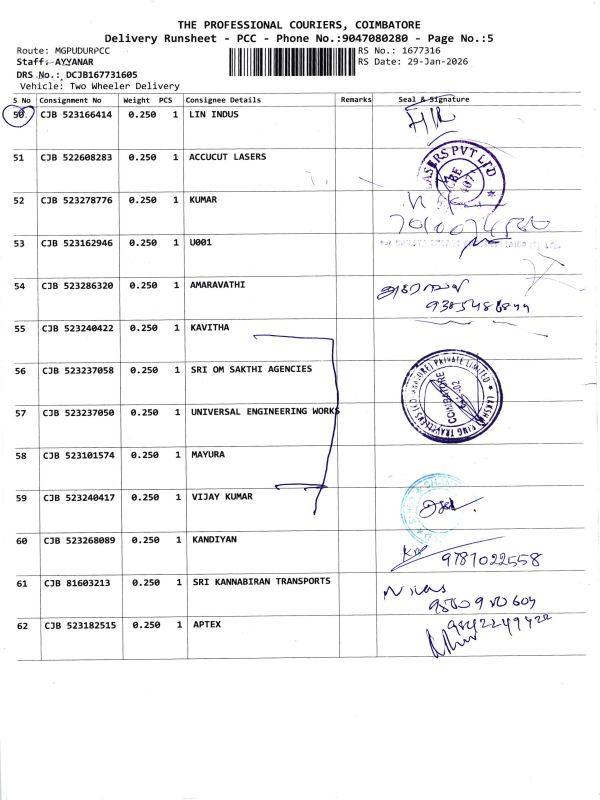 THE PROFESSIONAL COURIERS, COIMBATORE
Delivery Runsheet - PCC - Phone No.:9047080280 - Page No.:5
Route: MGPUDURPCC RS No.: 1677316
Staff: AYYANAR RS Date: 29-Jan-2026
DRS No.: DCJB167731605
Vehicle: Two Wheeler Delivery
S No Consignment No Weight PCS Consignee Details Remarks Seal & Signature
50 CJB 523166414 0.250 1 LIN INDUS
51 CJB 522608283 0.250 1 ACCUCUT LASERS
LASERS PVT LTD
52 CJB 523278776 0.250 1 KUMAR
53 CJB 523162946 0.250 1 U001
54 CJB 523286320 0.250 1 AMARAVATHI
55 CJB 523240422 0.250 1 KAVITHA
56 CJB 523237058 0.250 1 SRI OM SAKTHI AGENCIES
PRIVATE LIMITED
COIMBATORE
57 CJB 523237050 0.250 1 UNIVERSAL ENGINEERING WORKS
58 CJB 523101574 0.250 1 MAYURA
59 CJB 523240417 0.250 1 VIJAY KUMAR
60 CJB 523268089 0.250 1 KANDIYAN
9787022558
61 CJB 81603213 0.250 1 SRI KANNABIRAN TRANSPORTS
62 CJB 523182515 0.250 1 APTEX